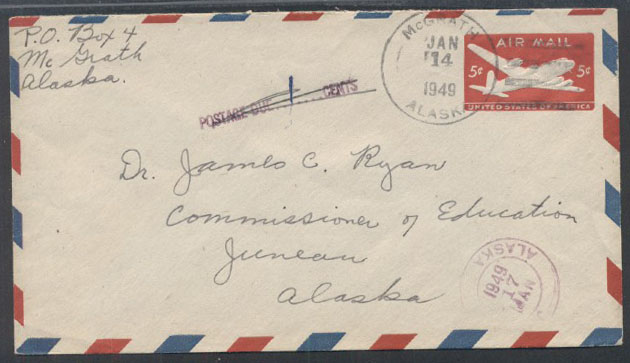 P.O. Box 4
Mc Grath
Alaska.
POSTAGE DUE 1 CENTS
McGRATH
JAN
14
1949
ALASKA
AIR MAIL
5¢ 5¢
UNITED STATES OF AMERICA
Dr. James C. Ryan
Commissioner of Education
Juneau
Alaska
ALASKA
JAN
17
1949